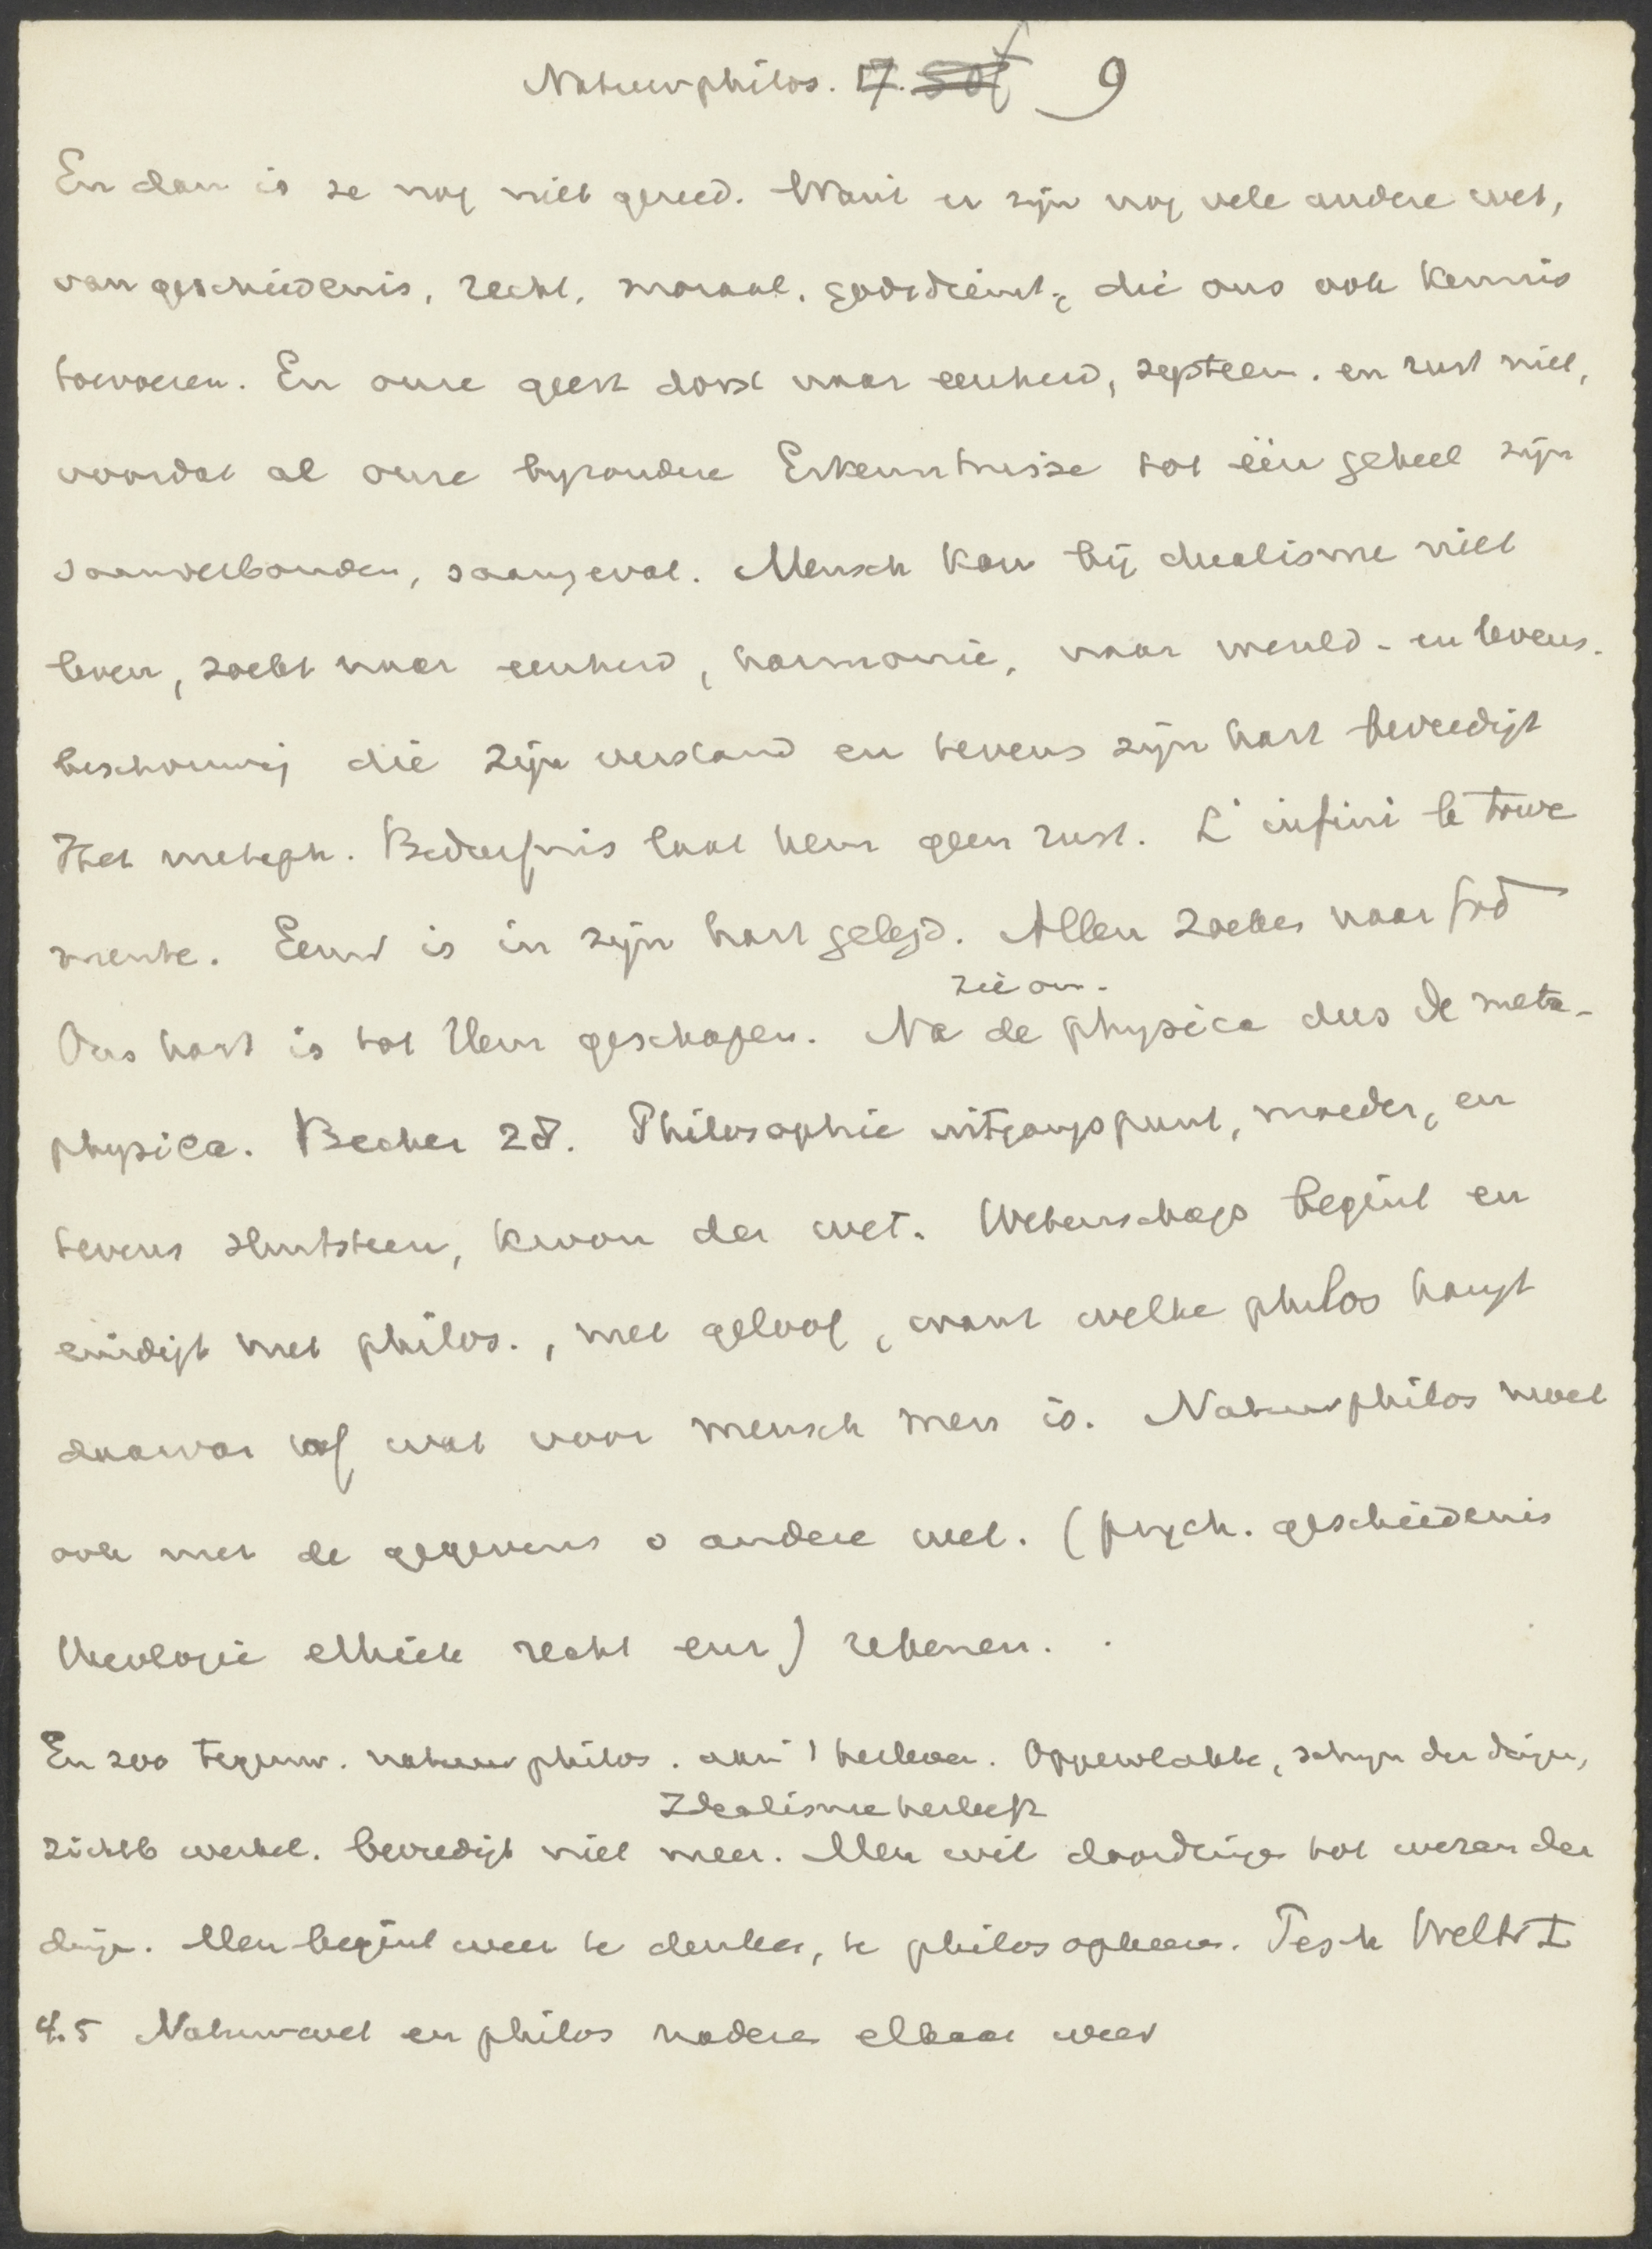 Natuurphilos. 17. 9
En dan is ze nog niet gereed. Want er zijn nog vele andere wet,
van geschiedenis, recht, moraal, godsdienst, die ons ook kennis
toevoeren. En onze geest dorst naar eenheid, systeem. en rust niet,
voordat al onze byzondere Erkenntnisse tot één geheel zijn
saamverbonden, saamgevat. Mensch kan bij dualisme niet
leven, zoekt naar eenheid, harmonie, naar wereld- en levens-
beschouwing die zijn verstand en tevens zijn hart bevredigt
Het metaph. Bedürfnis laat hem geen rust. L'infini le tour
mente. Eeuw is in zijn hart gelegd. Allen zoeken naar God
zie om.
Ons hart is tot Hem geschapen. Na de physica dus de meta-
physica. Becher 28. Philosophie uitgangspunt, moeder, en
tevens sluitsteen, kroon der wet. Wetenschap begint en
eindigt met philos., met geloof, want welke philos hangt
daarvan af wat voor mensch men is. Natuurphilos moet
ook met de gegevens o andere wet. (psych. geschiedenis
theologie ethiek recht enz) rekenen.
En zoo tegenw. natuurphilos. aan 't herleven. Oppervlakte, schijn der dingen,
Idealisme herleeft
zichtb wereld. bevredigt niet meer. Men wil doordringen tot wezen der
dingen. Men begint weer te denken, te philosopheeren. Pesch Weltr I
4.5 Natuurwet en philos naderen elkaar weer